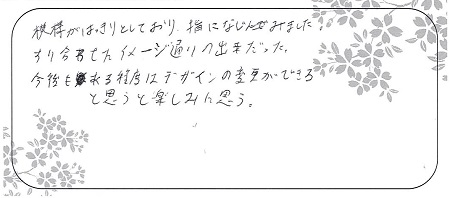 模様がはっきりとしており、指になじんでみました。
すり合わせたイメージ通りの出来だった。
今後もある程度はデザインの変更ができる
と思うと楽しみに思う。